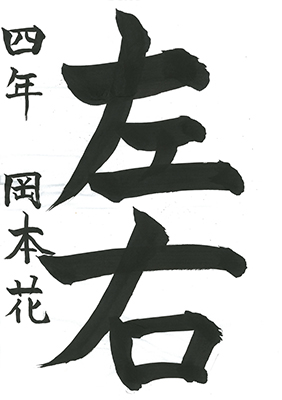 左右
四年 岡本花